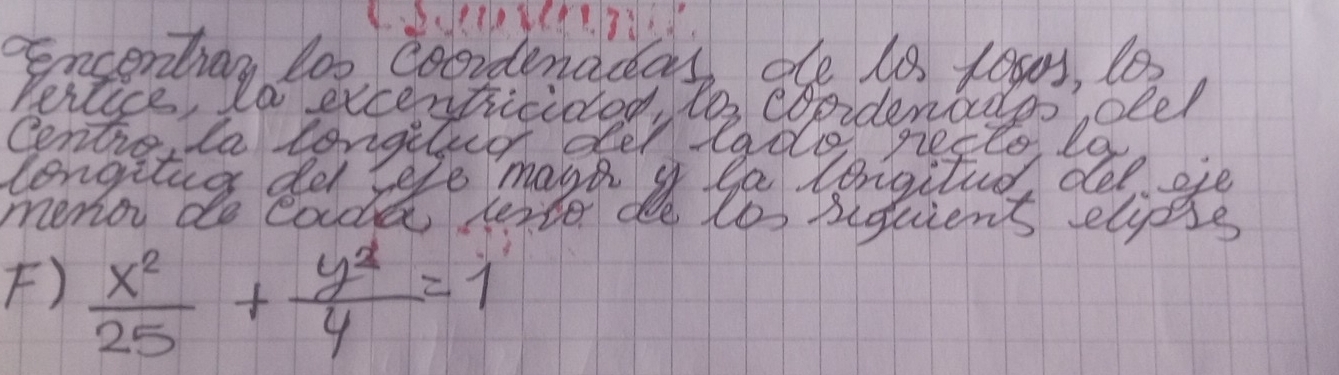 Encontrar los coordenadas de los focos, los
vertice, la excentricidad, los coordenadas del
Centro, la longitud del lado recto, la
longitud del eje mayor y la longitud del eje
menor de cada uno de los siguient elipses
F) x²/25 + y²/4 = 1